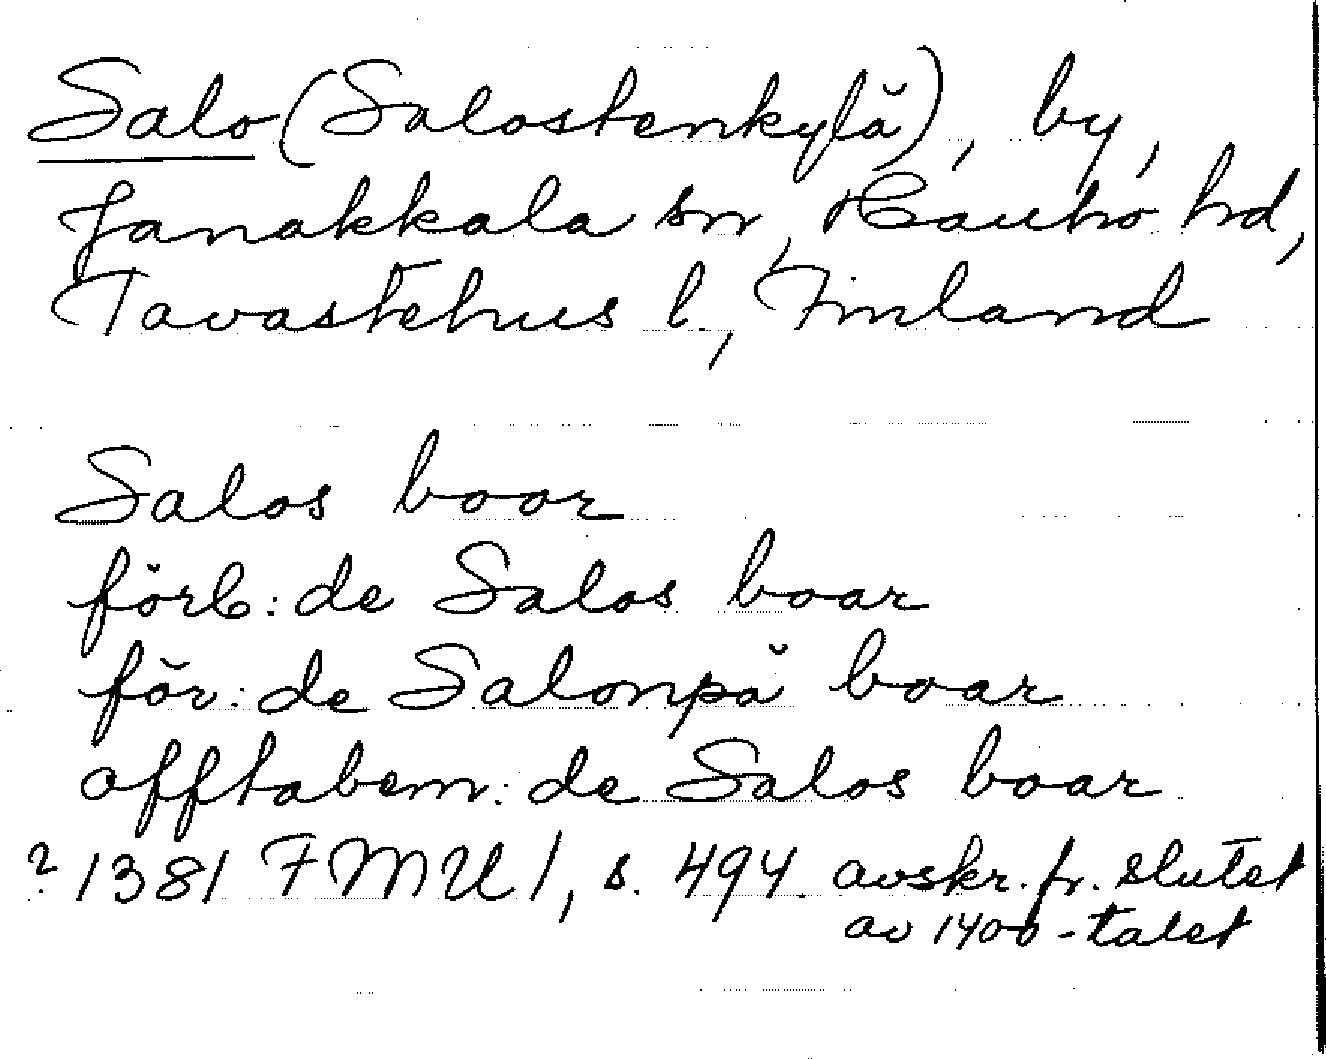 Salo (Salostenkylä), by,
Janakkala sn, Hauho hd,
Tavastehus l, Finland
Salos boor
förb: de Salos boar
för: de Salonpä boar
offtabem: de Salos boar
? 1381 FMU 1, s. 494 avskr. fr. slutet
av 1400-talet